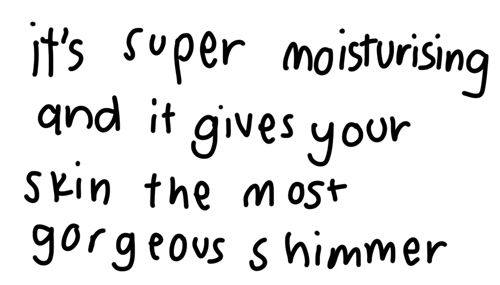 it's super moisturising
and it gives your
skin the most
gorgeous shimmer